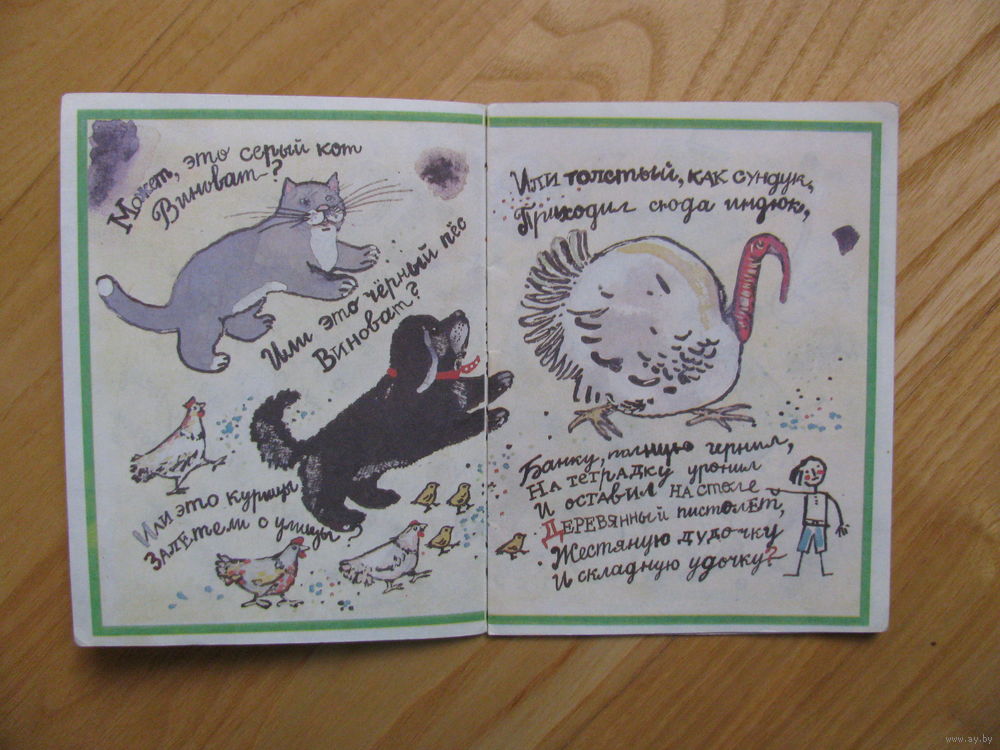 Может, это серый кот
Виноват?
Или это чёрный пёс
Виноват?
Или это курицы
Залетели с улицы?
Или толстый, как сундук,
Приходил сюда индюк,
Банку, полную чернил,
На тетрадку уронил
И оставил на столе
Деревянный пистолет,
Жестяную дудочку
И складную удочку?
www.ay.by